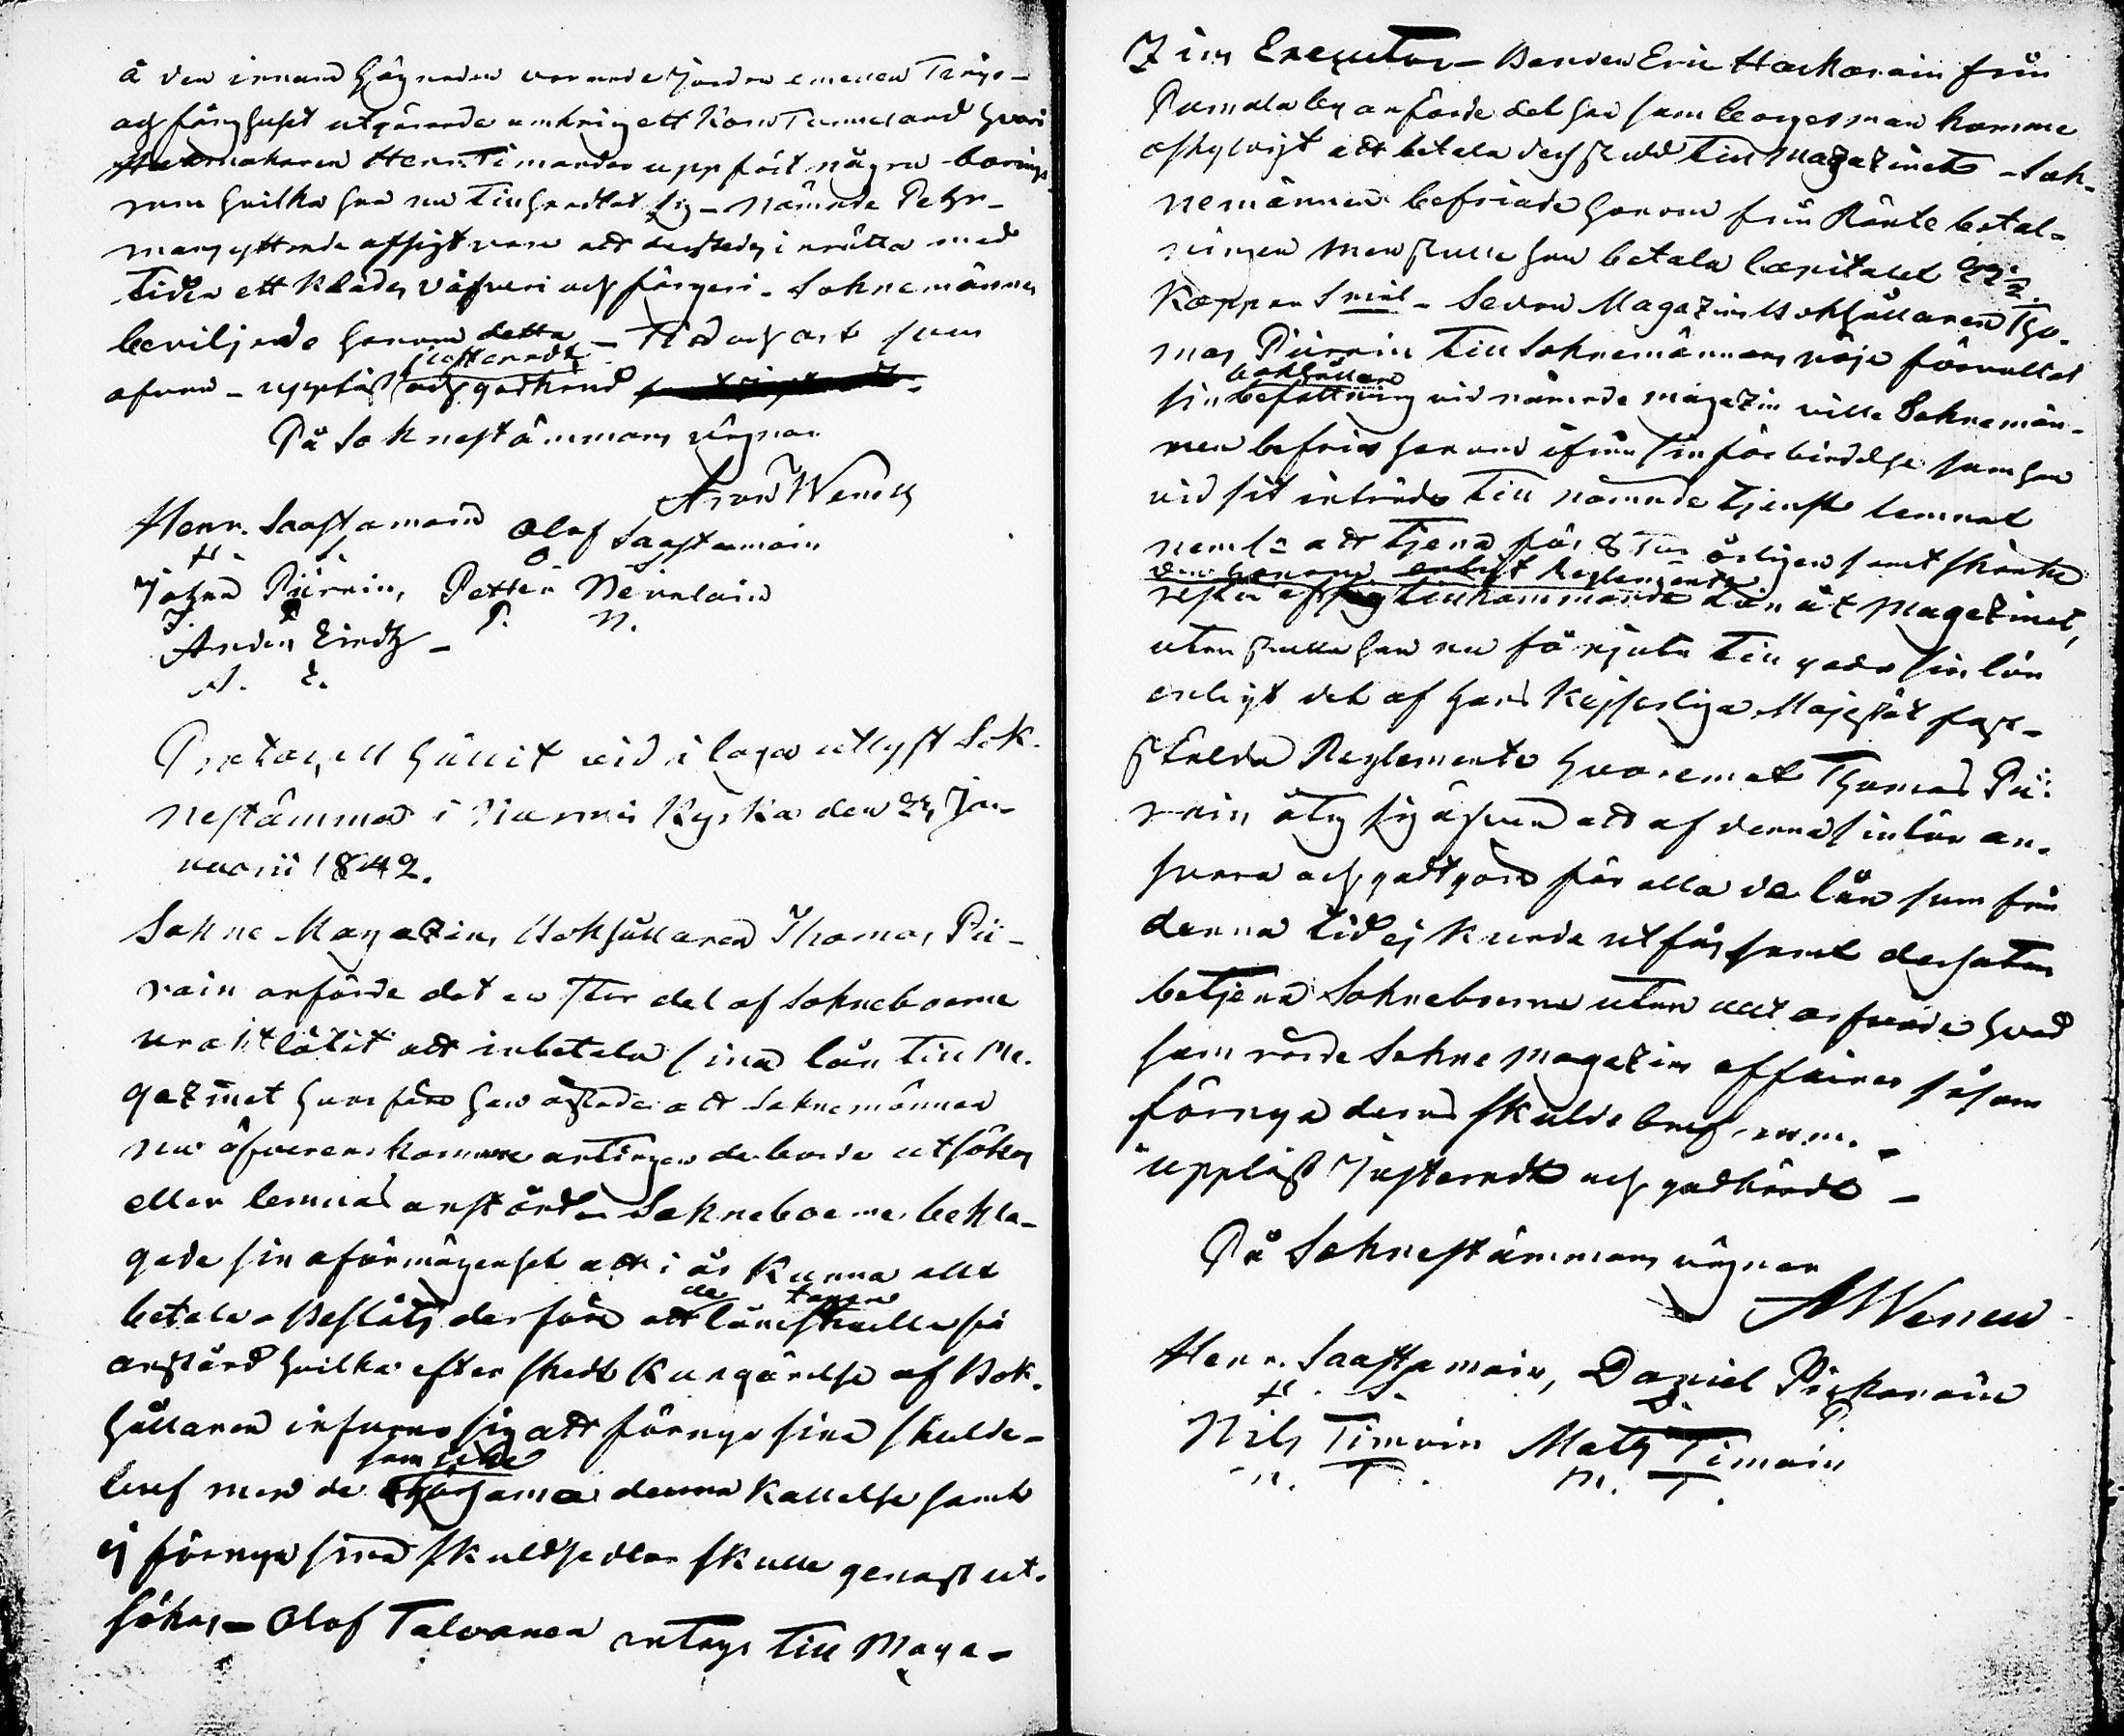 å den innom hägnaden varande jorden emellan Tings-
och färghuset utgörande omkring ett Kors Tunneland hvari
Henr. Timander uppfört några
rum hvilka han nu tillhandlat sig - nämnde Pehr-
mans yttrade afsigt vara att derstedes inrätta med
tiden ett Klädes väfveri och färgeri. Soknemännen
beviljade honom detta - Tid och ort som
ofvan - uppläst justeradt och godkänd
På Soknestämmans vägnar
Aron Wenell
Henr. Saastamoin Olof Saastamoin
H. S. O S
Johan Piirain, Petter Neuvlain
J. P. P. N.
Anders Lindh -
A. L.
Protocoll hållit vid i laga utlyst Sok-
nestämma i Nurmis Kyrka den 24 Ja-
nuarii 1842.
Sokne Magazins Bokhållaren Thomas Pii-
rain anförde det en stor del af Sokneboerne
uraktlåtit att inbetala sina lån till Ma-
gazinet hvarföre han åstadde att Soknemännen
nu öfverenskomme antingen de borde utsökas
eller lemnas anstånd. Sokneboerne bekla-
gade sin oförmögenhet att i år Kunna allt
betala. Beslöts derföre att de lånetagare skulle få
anstånd hvilka efter skedd Kungörelse af Bok-
hållaren infunno sig att förnya sina skulde-
bref men de som icke åtlyda denna Kallelse samt
ej förnya sina skuldsedlar skulle genast ut-
sökas - Olof Talvanen antogs till Maga-
zins Executor - Bonden Eric Hackarain från
Pumala by anförde det han som borgesman komme
oskyldigt att betala des skuld till Magazinet - Sok-
nemännen befriade honom från Ränte betal-
ningen men skulle han betala Capitalet
Kappar Spml - Sedan Magazins Bokhållaren Tho-
mas Piirain till Soknemännens nöje förvaltat
sin bokhållare befattning vid nämnde magazin ville Soknemän-
nen befria honom ifrån sin förbindelse som han
vid sit inträde till nämnde tjenst lemnat
neml: att tjena för 8 Tnr årligen samt skänka
den honom enligt Reglementet
resten af tillkommande lön åt Magazinet,
utan skulle han nu få njuta till godo sin lön
enligt det af Hans Kejserliga Majestät fast-
stälda Reglemente hvaremot Thomas Pii-
rain åtog sig äfven att af denna sin lön an-
svara och godtgöra för alla de lån som från
denna tid ej kunde utfås samt dessutom
betjena Sokneboerne utan allt arfvode hvad
som rörde Sokne magazins affairer såsom
förnya deras skuldebref m.m. -
Uppläst Justeradt och godkändt -
På Soknestämmans vägnar
AWenell
Henr. Saastamoin, Daniel Pitkarain
H. S. D. P.
Nils Timoin Mats Timoin
N. T. M. T.